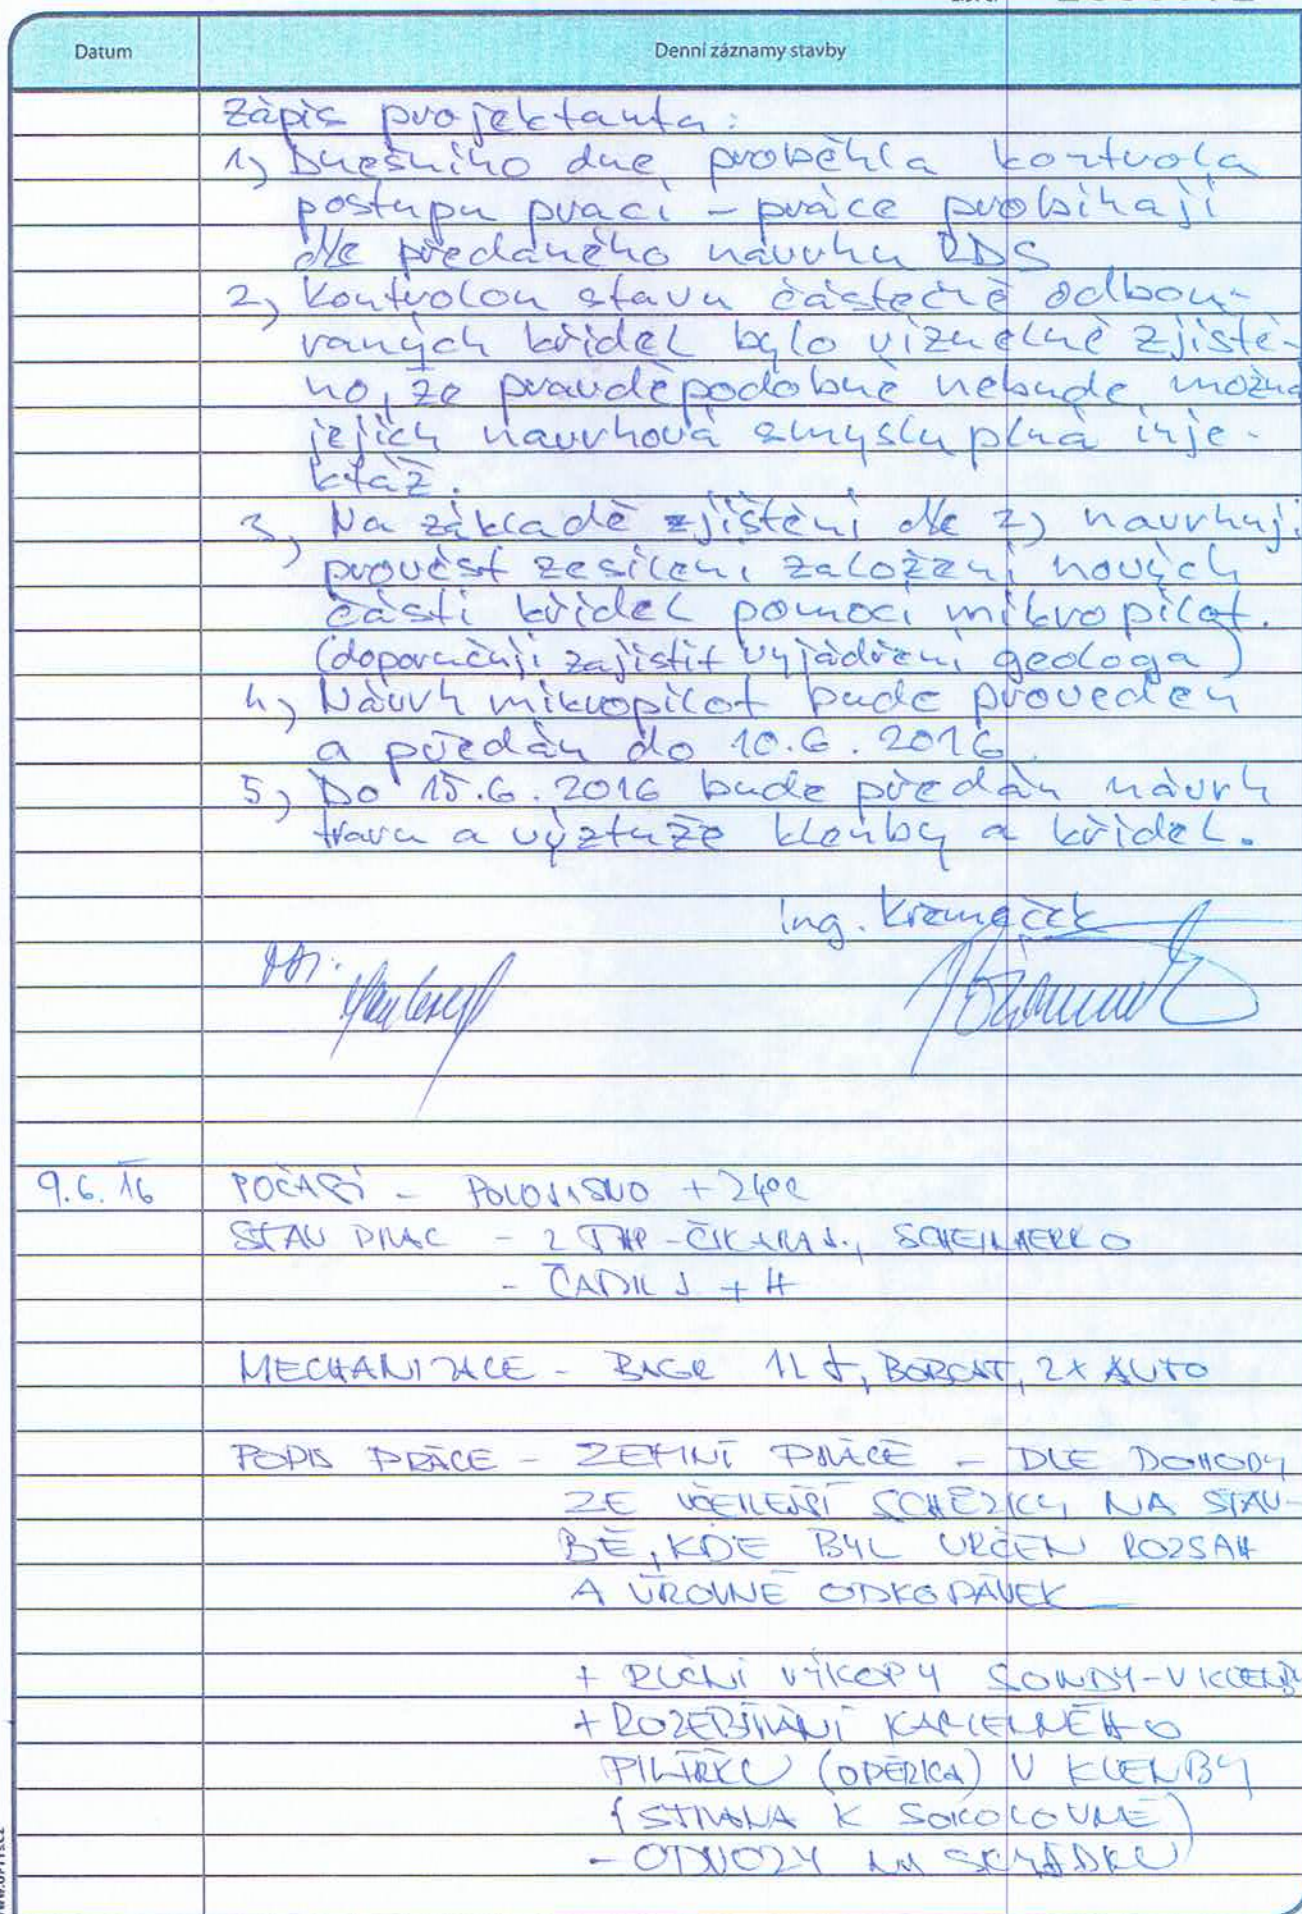 Datum
Denní záznamy stavby
Zápis projektanta:
1) Dnešního dne proběhla kontrola
postupu prací - práce probíhají
dle předaného návrhu RDS
2) Kontrolou stavu částečně odbou-
raných křídel bylo vizuelně zjiště-
no, že pravděpodobně nebude možná
jejich návrhová smysluplná inje-
ktáž.
3) Na základě zjištění dle 2) navrhuji
provést zesílení založení nových
částí křídel pomocí mikropilot.
(doporučuji zajistit vyjádření geologa)
4) Návrh mikropilot bude proveden
a předán do 10.6.2016
5) Do 15.6.2016 bude předán návrh
tvaru a výztuže klenby a křídel.
Ing. Křemeček
9.6.16
POČASÍ - POLOJASNO +24°C
STAV PRAC - 2 THP -
- ČADIL J + H
MECHANIZACE - BAGR BOBCAT, 2X AUTO
POPIS PRÁCE - ZEMNÍ PRÁCE - DLE DOHODY
ZE VČEREJŠÍ SCHŮZKY NA STAV-
BĚ, KDE BYL URČEN ROZSAH
A ÚROVNĚ ODKOPÁVEK
+ RUČNÍ VÝKOPY SONDY - U KLENBY
+ ROZEBÍRÁNÍ KAMENNÉHO
PILÍŘKU (OPĚRKA) U KLENBY
(STRANA K SOKOLOVNĚ)
- ODVOZY NA SKLÁDKU